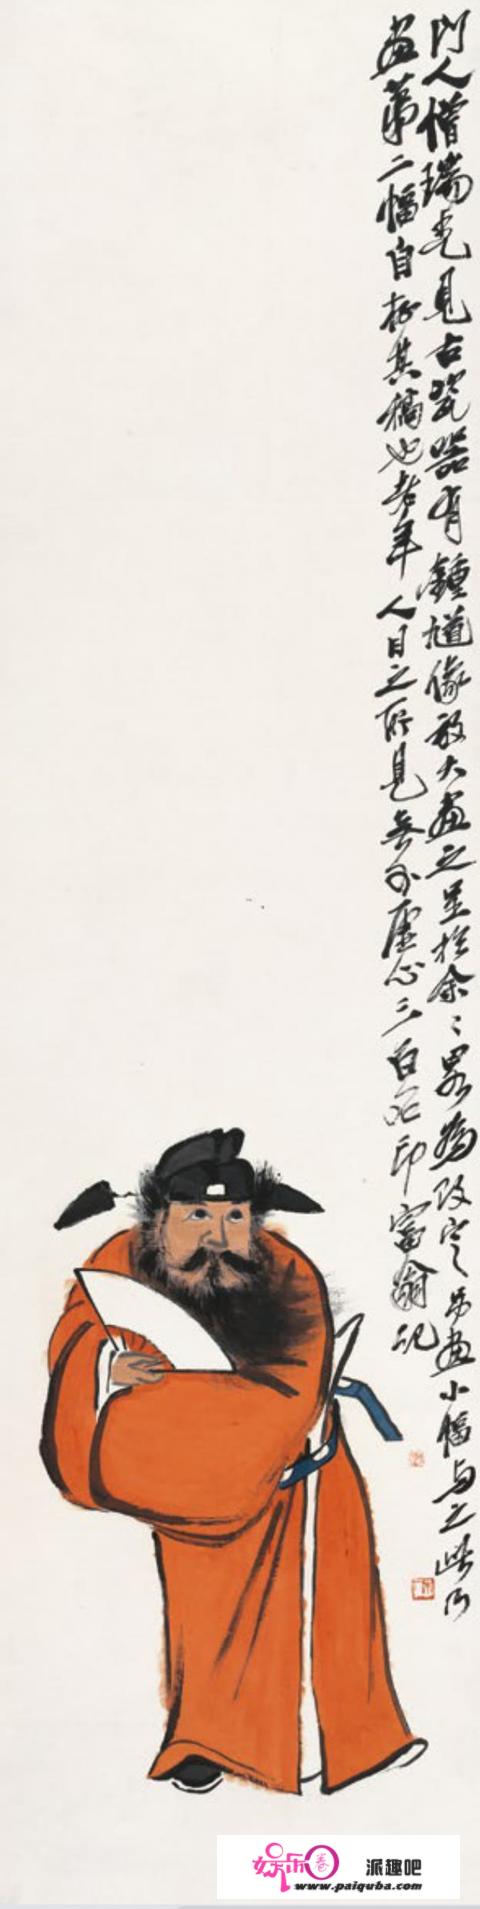 門人僧瑞光見古瓷器有鍾馗像放大畫之呈於余〻略為改定另畫小幅与之此乃
畫第二幅自存其稿也老年人目之所見無不虛心三百石印富翁記
娱乐卷
派趣吧
www.paiquba.com